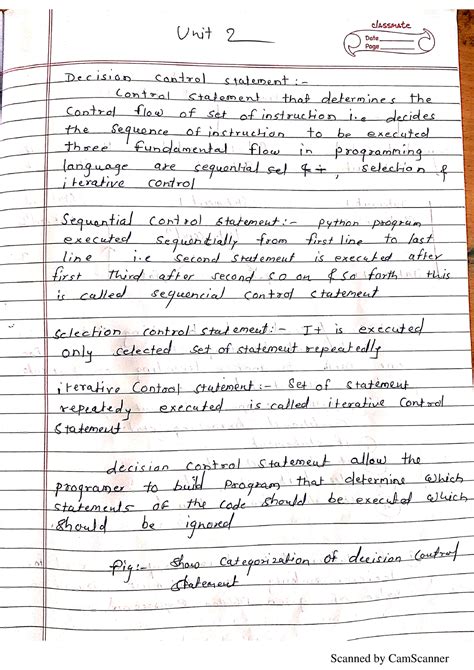 Unit 2
classmate
Date
Page
Decision control statement :-
Control statement that determines the
control flow of set of instruction i.e decides
the sequence of instruction to be executed
three fundamental flow in programming
language are sequential sel , selection &
iterative control
Sequential control statement :- python program
executed sequentially from first line to last
line i.e second statement is executed after
first third after second so on & so forth this
is called sequencial control statement
selection control statement :- It is executed
only selected set of statement repeatedly
iterative Control statement :- Set of statement
repeatedy executed is called iterative control
statement
decision control statement allow the
programer to build program that determine which
statements of the code should be executed which
should be ignored
fig:- show categorization of decision control
statement
Scanned by CamScanner